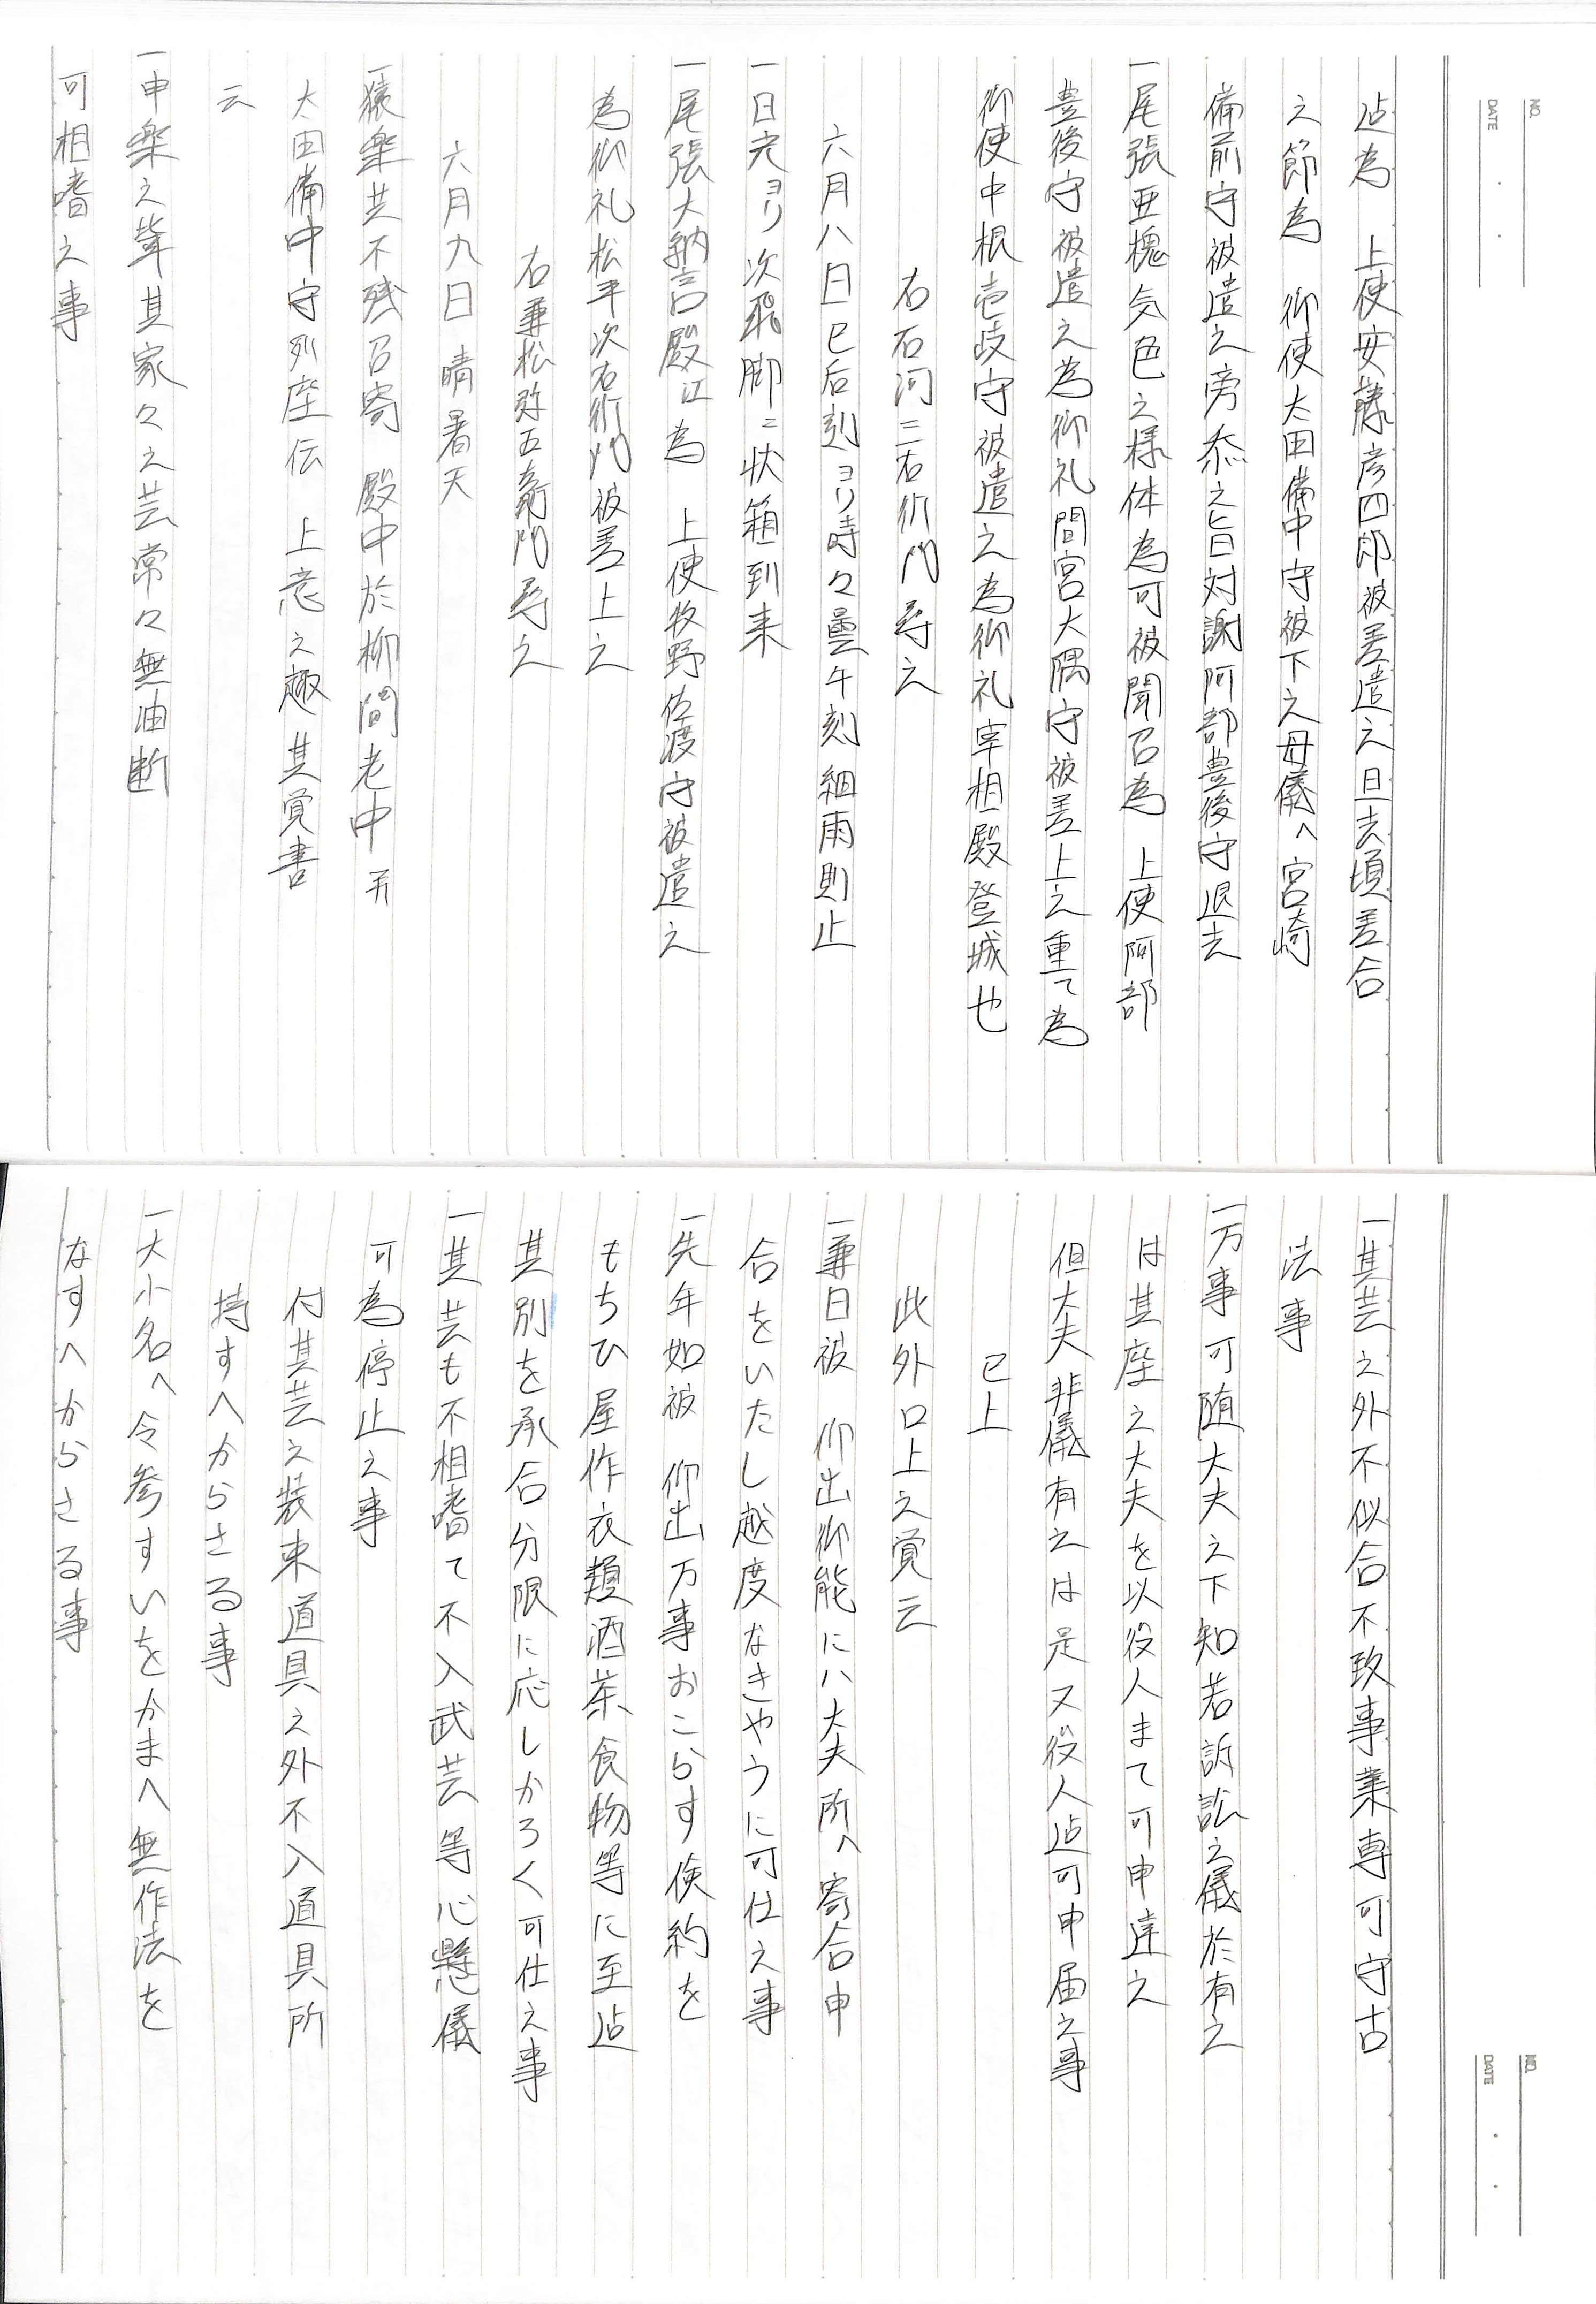 NO.
DATE
迠為　上使安藤彦四郎被差遣之旦去頃差合
之節為　御使太田備中守被下之母儀へ宮崎
備前守被遣之旁忝之旨対謝阿部豊後守退去
一尾張亜槐気色之様体為可被聞召為　上使阿部
豊後守被遣之為御礼間宮大隅守被差上之重て為
御使中根壱岐守被遣之為御礼宰相殿登城也
右石河三右衛門尋之
六月八日巳后刻ヨリ時々曇午刻細雨則止
一日光ヨリ次飛脚ニ状箱到来
一尾張大納言殿江為　上使牧野佐渡守被遣之
為御礼松平次右衛門被差上之
右兼松弥五左衛門尋之
六月九日晴暑天
一猿楽共不残召寄　殿中於柳間老中并
太田備中守列座伝　上意之趣其覚書
云
一申楽之輩其家々之芸常々無油断
可相嗜之事
NO.
DATE
一其芸之外不似合不致事業専可守古
法事
一万事可随大夫之下知若訴訟之儀於有之
は其座之大夫を以役人まて可申達之
但大夫非儀有之は是又役人迠可申届之事
已上
此外口上之覚云
一兼日被　仰出御能にハ大夫所へ寄合申
合をいたし越度なきやうに可仕之事
一先年如被　仰出万事おこらす倹約を
もちひ屋作衣類酒茶食物等に至迠
其別を承合分限に応しかろく可仕之事
一其芸も不相嗜て不入武芸等心懸儀
可為停止之事
付其芸之装束道具之外不入道具所
持すへからさる事
一大小名へ令参すいをかまへ無作法を
なすへからさる事